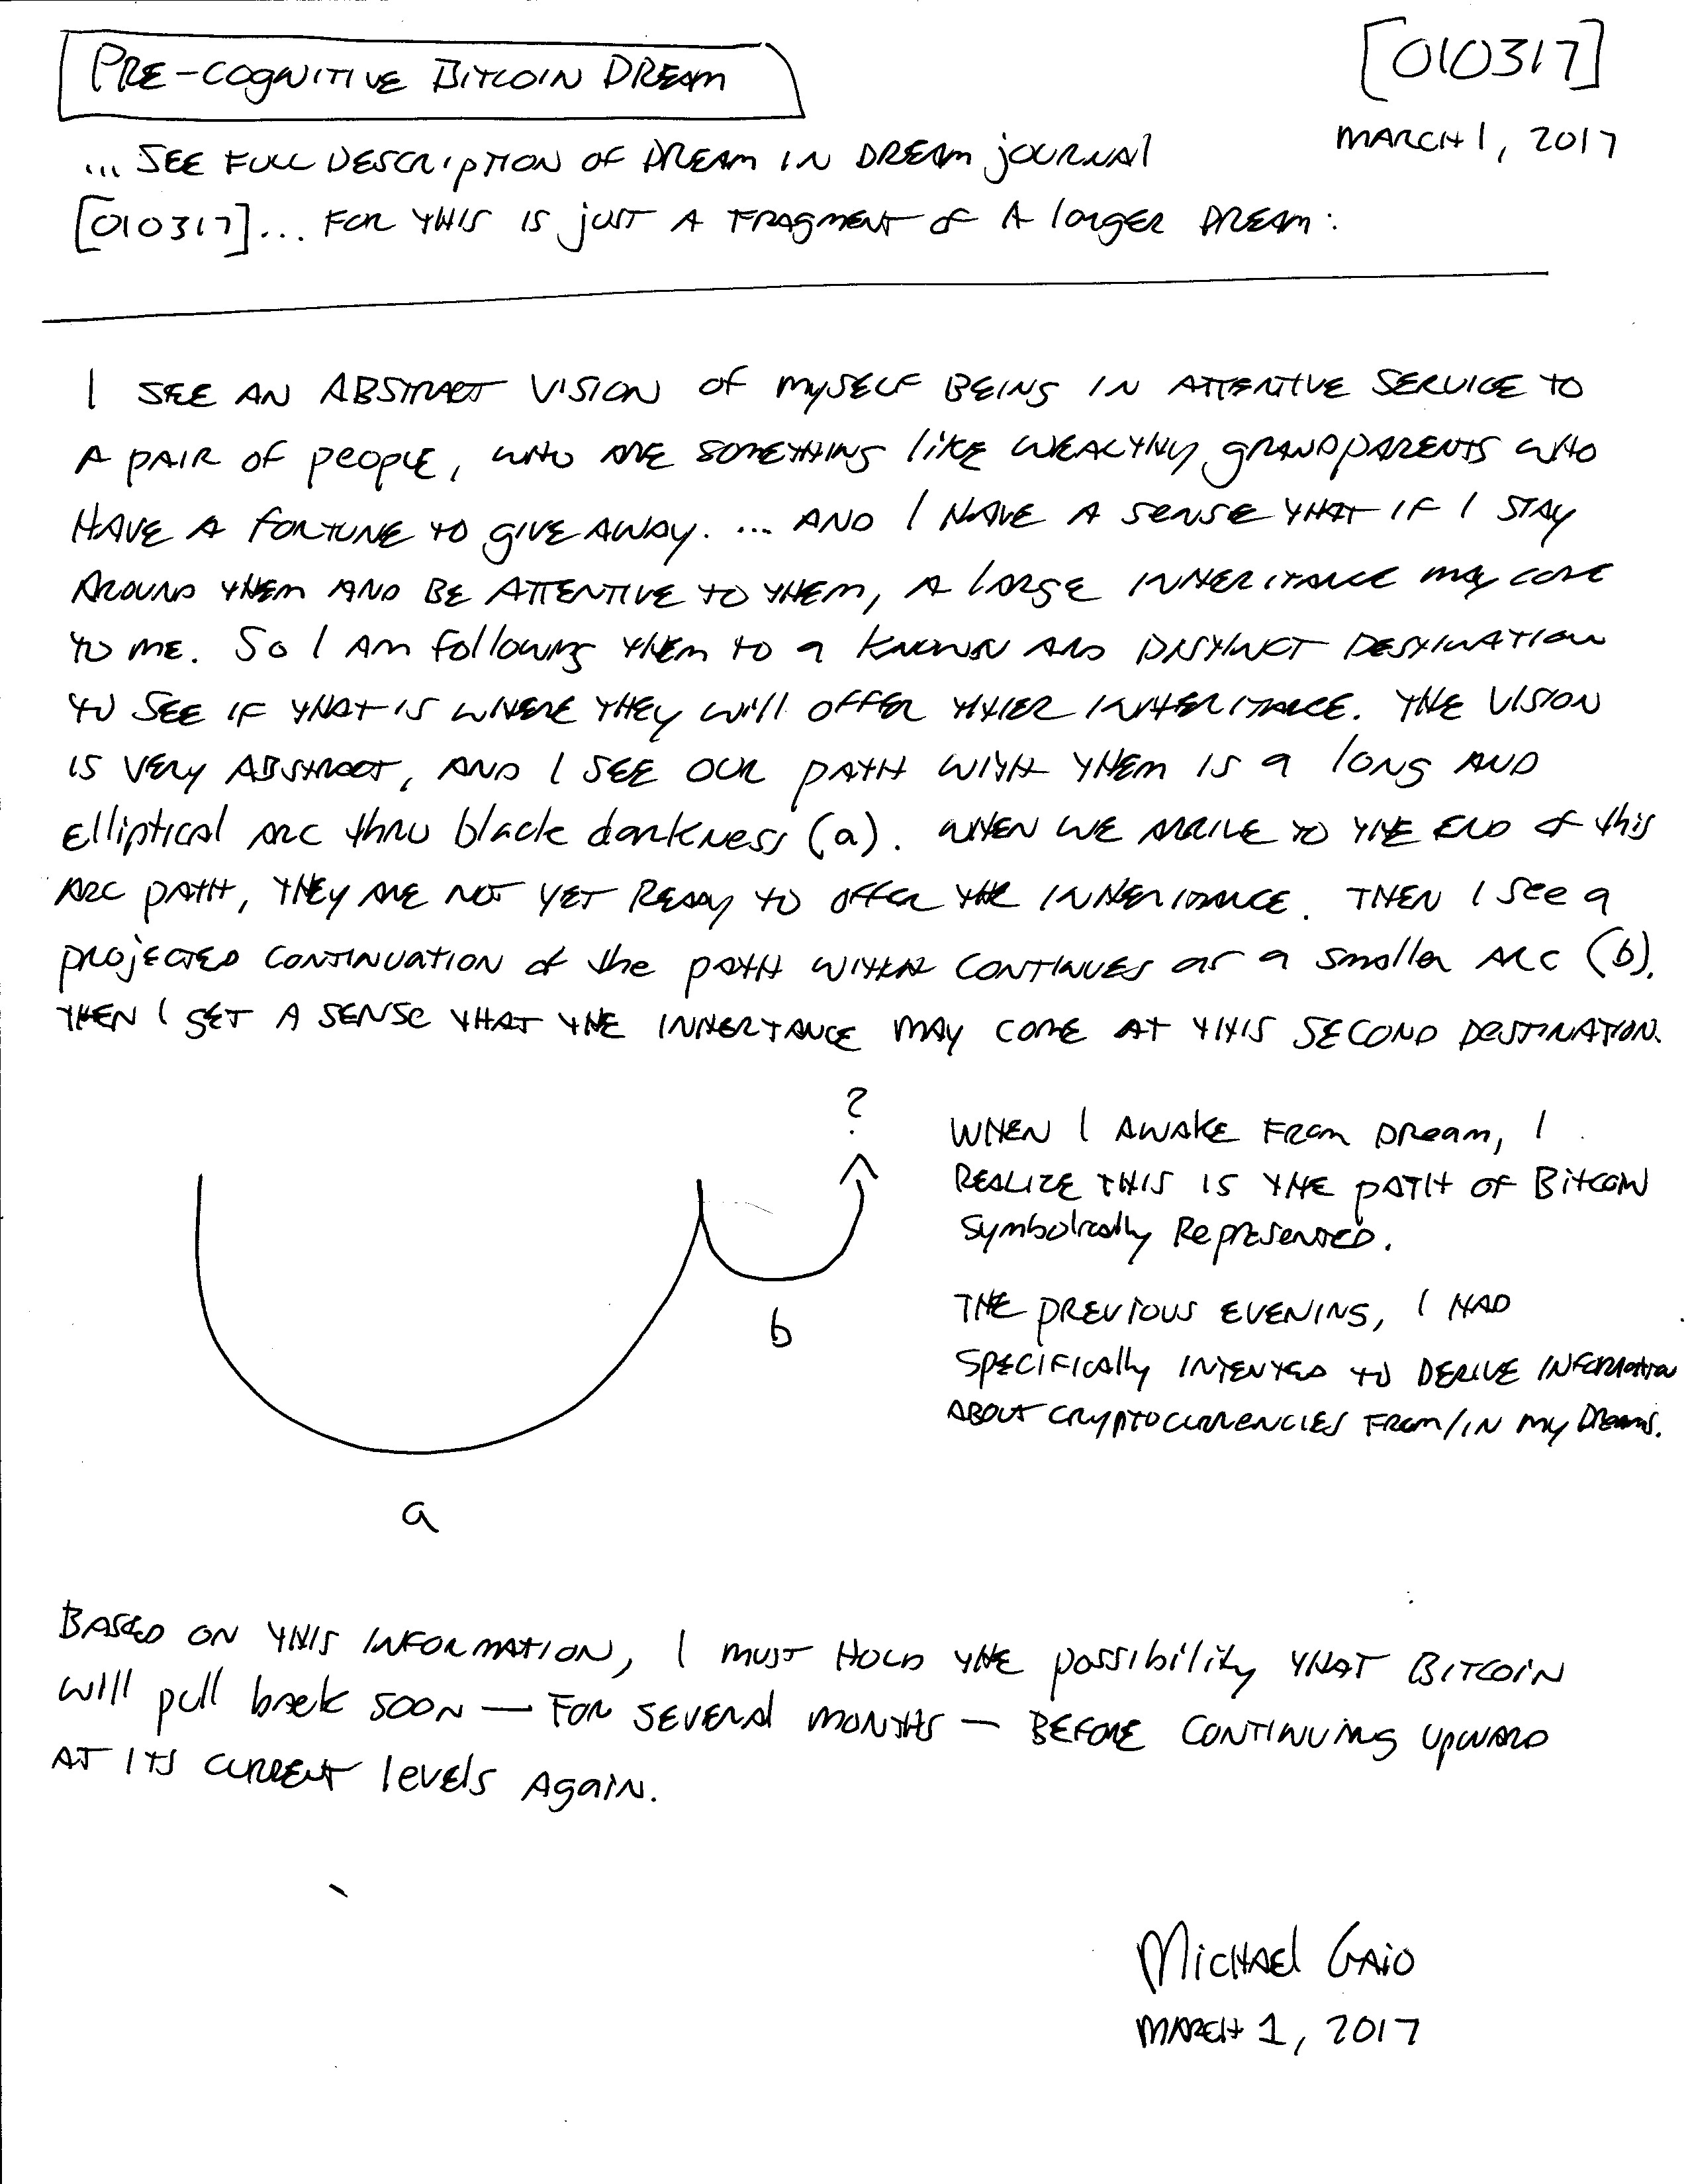 PRE-COGNITIVE BITCOIN DREAM
[010317]
MARCH 1, 2017
... SEE FULL DESCRIPTION OF DREAM IN DREAM JOURNAL
[010317]... FOR THIS IS JUST A FRAGMENT OF A LARGER DREAM:
I SEE AN ABSTRACT VISION OF MYSELF BEING IN ATTENTIVE SERVICE TO
A PAIR OF PEOPLE, WHO ARE SOMETHING LIKE WEALTHY GRANDPARENTS WHO
HAVE A FORTUNE TO GIVE AWAY. ... AND I HAVE A SENSE THAT IF I STAY
AROUND THEM AND BE ATTENTIVE TO THEM, A LARGE INHERITANCE MAY COME
TO ME. SO I AM FOLLOWING THEM TO A KNOWN AND DISTINCT DESTINATION
TO SEE IF THAT IS WHERE THEY WILL OFFER THIER INHERITANCE. THE VISION
IS VERY ABSTRACT, AND I SEE OUR PATH WITH THEM IS A LONG AND
elliptical ARC thru black darkness (a). WHEN WE ARRIVE TO THE END of this
ARC PATH, THEY ARE NOT YET READY TO OFFER THE INHERITANCE. THEN I SEE a
PROJECTED CONTINUATION of the PATH WHICH CONTINUES as a smaller ARC (b).
THEN I GET A SENSE THAT THE INHERTANCE MAY COME AT THIS SECOND DESTINATION.
?
WHEN I AWAKE FROM DREAM, I
REALIZE THIS IS THE PATH OF BITCOIN
Symbolically REPRESENTED.
THE PREVIOUS EVENING, I HAD
SPECIFICALLY INTENTED TO DERIVE INFORMATION
ABOUT CRYPTOCURRENCIES FROM/IN MY DREAMS.
b
a
BASED ON THIS INFORMATION, I MUST HOLD THE possibility THAT BITCOIN
will pull back SOON — FOR SEVERAL MONTHS — BEFORE CONTINUING UPWARD
AT ITS CURRENT levels AGAIN.
MICHAEL GAIO
MARCH 1, 2017